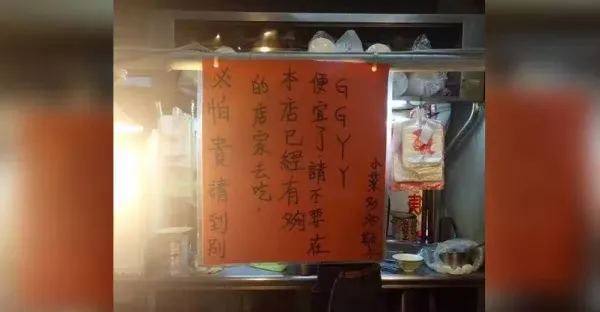 必怕貴請到別
的店家去吃,
本店已經有夠
便宜了請不要在
GGYY
小菜